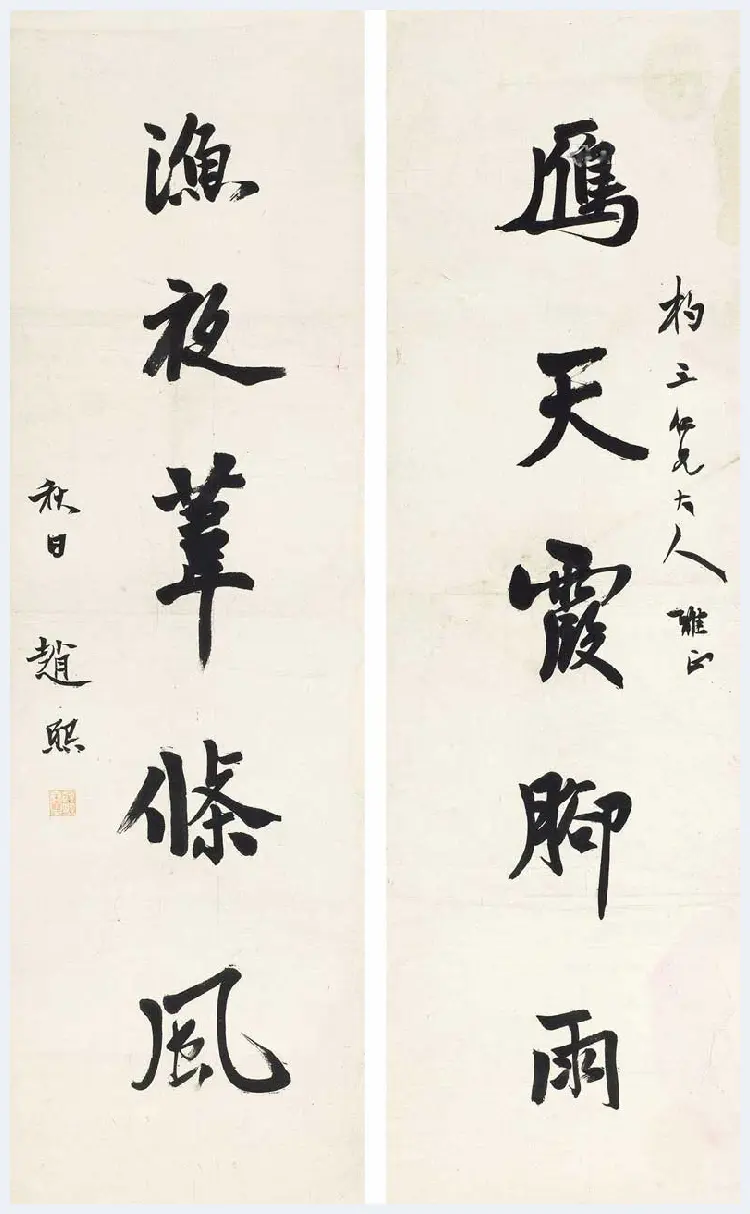 鴈天霞腳雨
杓三仁兄大人雅正
漁夜葦條風
秋日趙熙